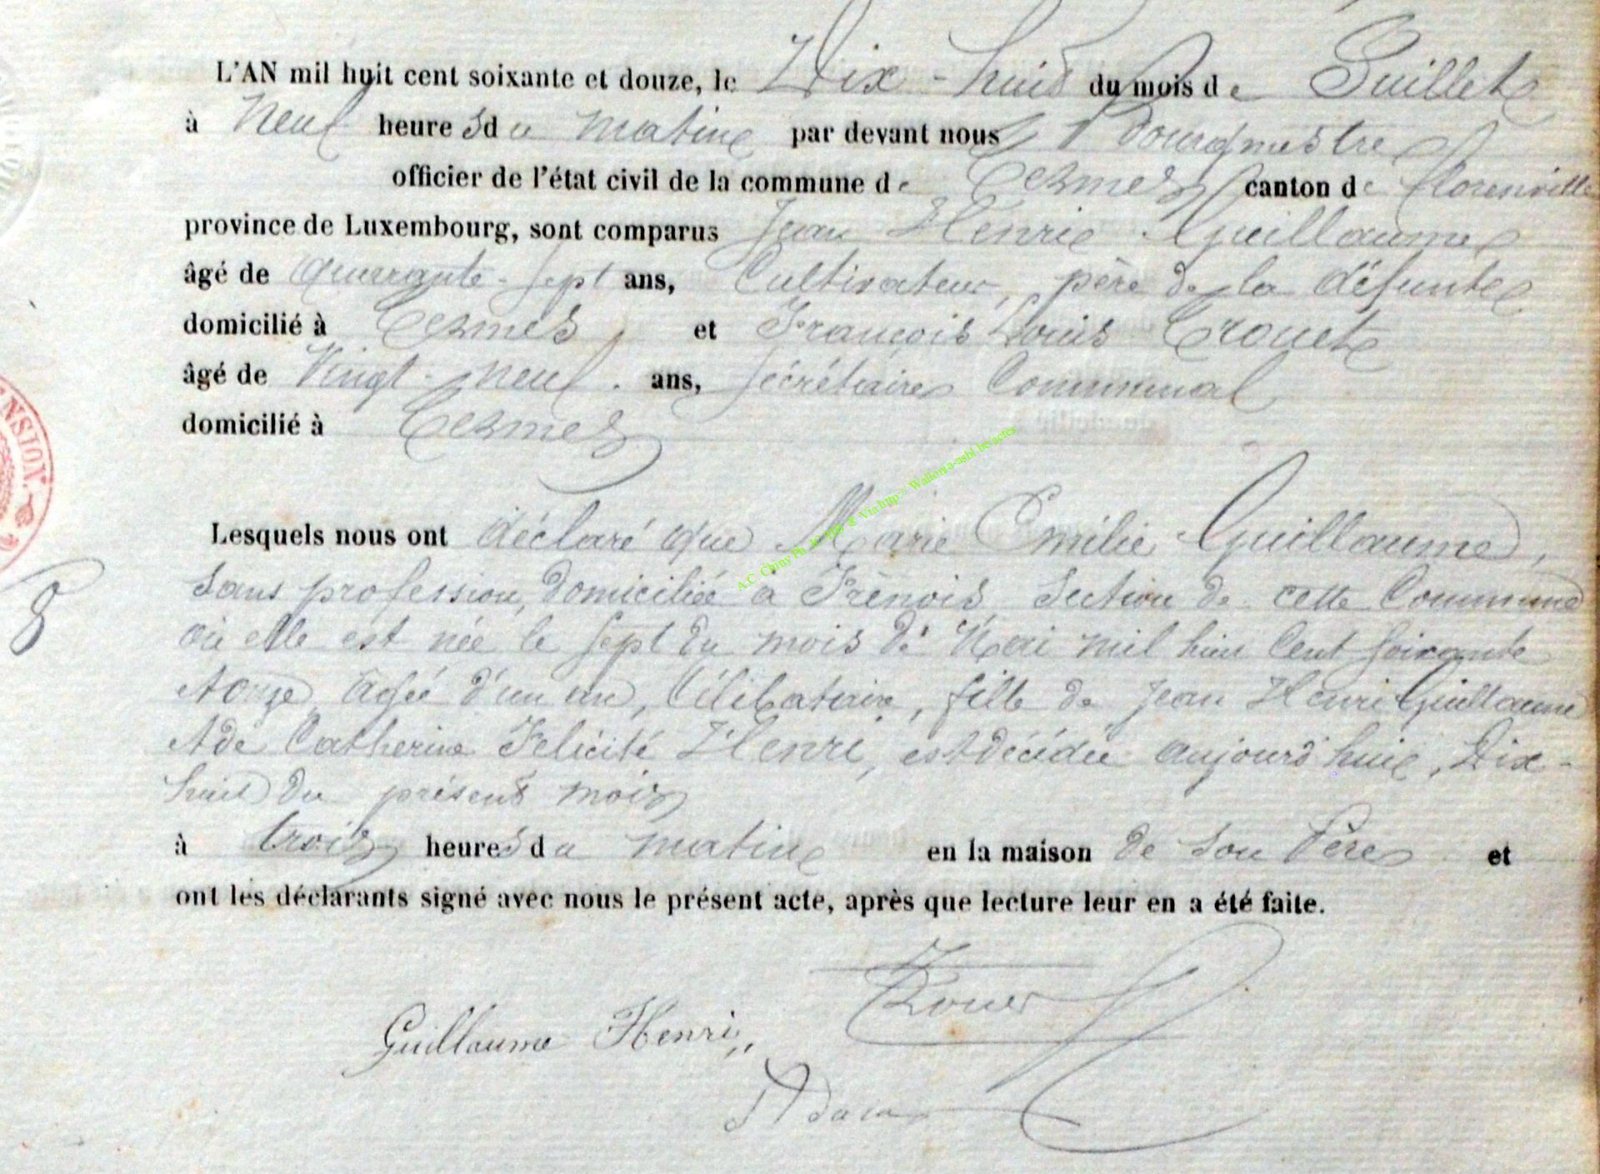 L'AN mil huit cent soixante et douze, le Dix-huit du mois de Juillet
à Neuf heures du matin par devant nous Bourgmestre
officier de l'état civil de la commune de Termes canton de Florenville
province de Luxembourg, sont comparus Jean Henri Guillaume
âgé de quarante-sept ans, Cultivateur, père de la défunte
domicilié à Termes, et François Louis Trouet
âgé de Vingt-neuf ans, Sécrétaire Communal
domicilié à Termes
Lesquels nous ont déclaré que Marie Emilie Guillaume,
sans profession, domiciliée à Frénois, Section de cette Commune
où elle est née le sept du mois de Mai mil huit Cent soixante
et onze, âgée d'un an, Célibataire, fille de Jean Henri Guillaume
et de Catherine Felicité Henri, est décédée aujourd'hui, Dix-
huit du présent mois
8
à trois heures du matin en la maison de son Père et
ont les déclarants signé avec nous le présent acte, après que lecture leur en a été faite.
Trouet
Guillaume Henri
Adam
NSION.